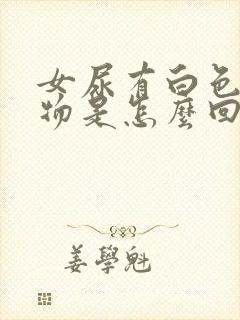 女尿有白色
物是怎麼回
姜學魁